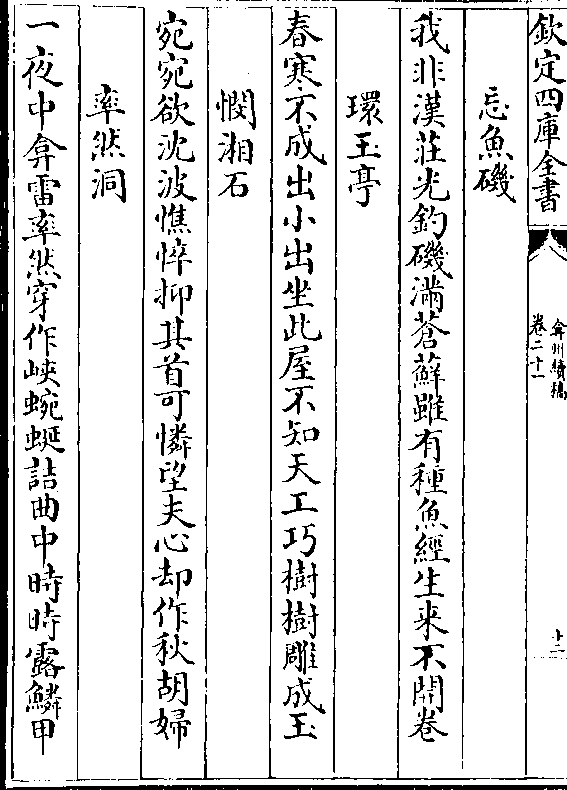 欽定四庫全書
弇州續稿
卷二十一
十二
忘魚磯
我非漢莊光釣磯滿蒼蘚雖有種魚經生来不開卷
環玉亭
春寒不成出小出坐此屋不知天工巧樹樹雕成玉
憫湘石
宛宛欲沈波憔悴抑其首可憐望夫心却作秋胡婦
率然洞
一夜中弇雷率然穿作峽蜿蜒詰曲中時時露鱗甲